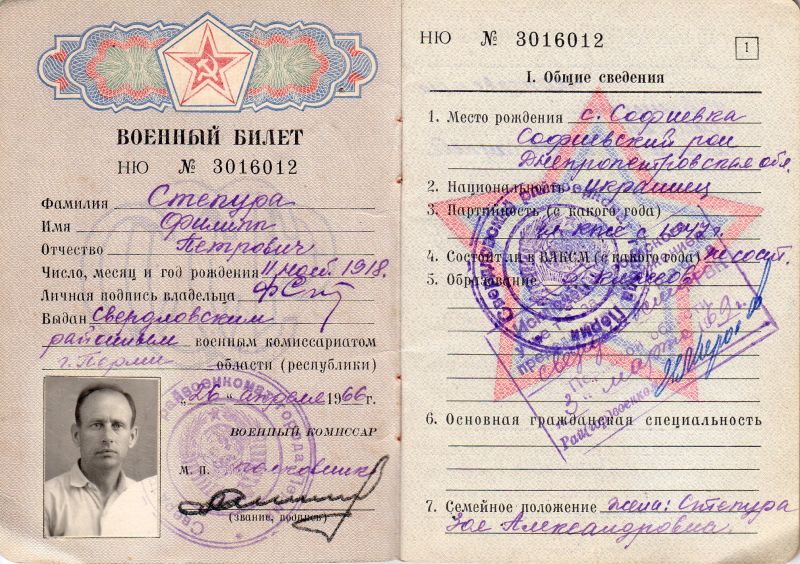 ВОЕННЫЙ БИЛЕТ
НЮ № 3016012
Фамилия Степура
Имя Филипп
Отчество Петрович
Число, месяц и год рождения 11 нояб. 1918.
Личная подпись владельца ФСт
Выдан Свердловским
районным военным комиссариатом
г. Перми области (республики)
„26“ апреля 1966 г.
ВОЕННЫЙ КОМИССАР
М. П. полковник
(звание, подпись)
НЮ № 3016012
1
I. Общие сведения
1. Место рождения с. Софиевка
Софиевский рой
Днепропетровская обл.
2. Национальность украинец
3. Партийность (с какого года)
чл. КПСС с 1947 г.
4. Состоял ли в ВЛКСМ (с какого года) не сост.
5. Образование
6. Основная гражданская специальность
7. Семейное положение жена: Степура
Зоя Александровна.